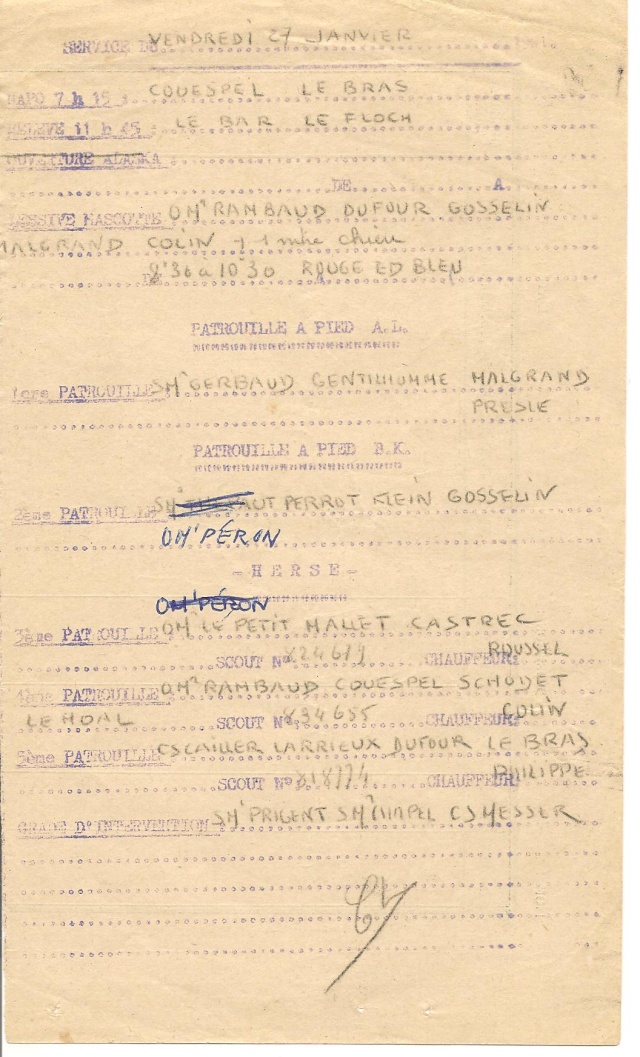 SERVICE DU VENDREDI 27 JANVIER
NAPO 7 h 15 : COUESPEL LE BRAS
RELEVE 11 h 45 : LE BAR LE FLOCH
OUVERTURE ALASKA
DE A
LESSIVE MASCOTTE OMr RAMBAUD DUFOUR GOSSELIN
MALGRAND COLIN + 1 mtre chien
8'30 a 10'30 ROUGE ED BLEU
PATROUILLE A PIED A.L.
1ère PATROUILLE SMr GERBAUD GENTILHOMME MALGRAND
PRESLE
PATROUILLE A PIED B.K.
2ème PATROUILLE PERROT KLEIN GOSSELIN
OMr PÉRON
- H E R S E -
OMr PÉRON
3ème PATROUILLE OM LE PETIT MALLET CASTREC
SCOUT N° CHAUFFEUR: ROUSSEL
4ème PATROUILLE OMr RAMBAUD COUESPEL SCHODET
LE HOAL SCOUT N° 834655 CHAUFFEUR: COLIN
5ème PATROUILLE CS CAILLER LARRIEUX DUFOUR LE BRAS
SCOUT N° 818774 CHAUFFEUR: PHILIPPE
GRADE D'INTERVENTION SMr PRIGENT SMr CS MESSER